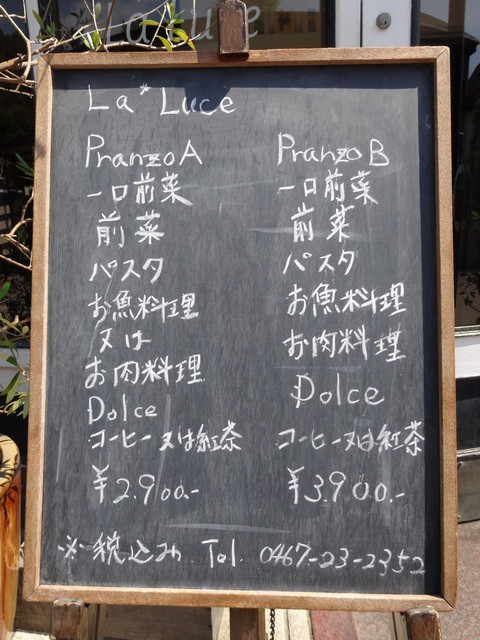 La Luce
La*Luce
Pranzo A
一口前菜
前菜
パスタ
お魚料理
又は
お肉料理
Dolce
コーヒー又は紅茶
¥2.900.-
Pranzo B
一口前菜
前菜
パスタ
お魚料理
お肉料理
Dolce
コーヒー又は紅茶
¥3.900.-
※税込み. Tel. 0467-23-2352